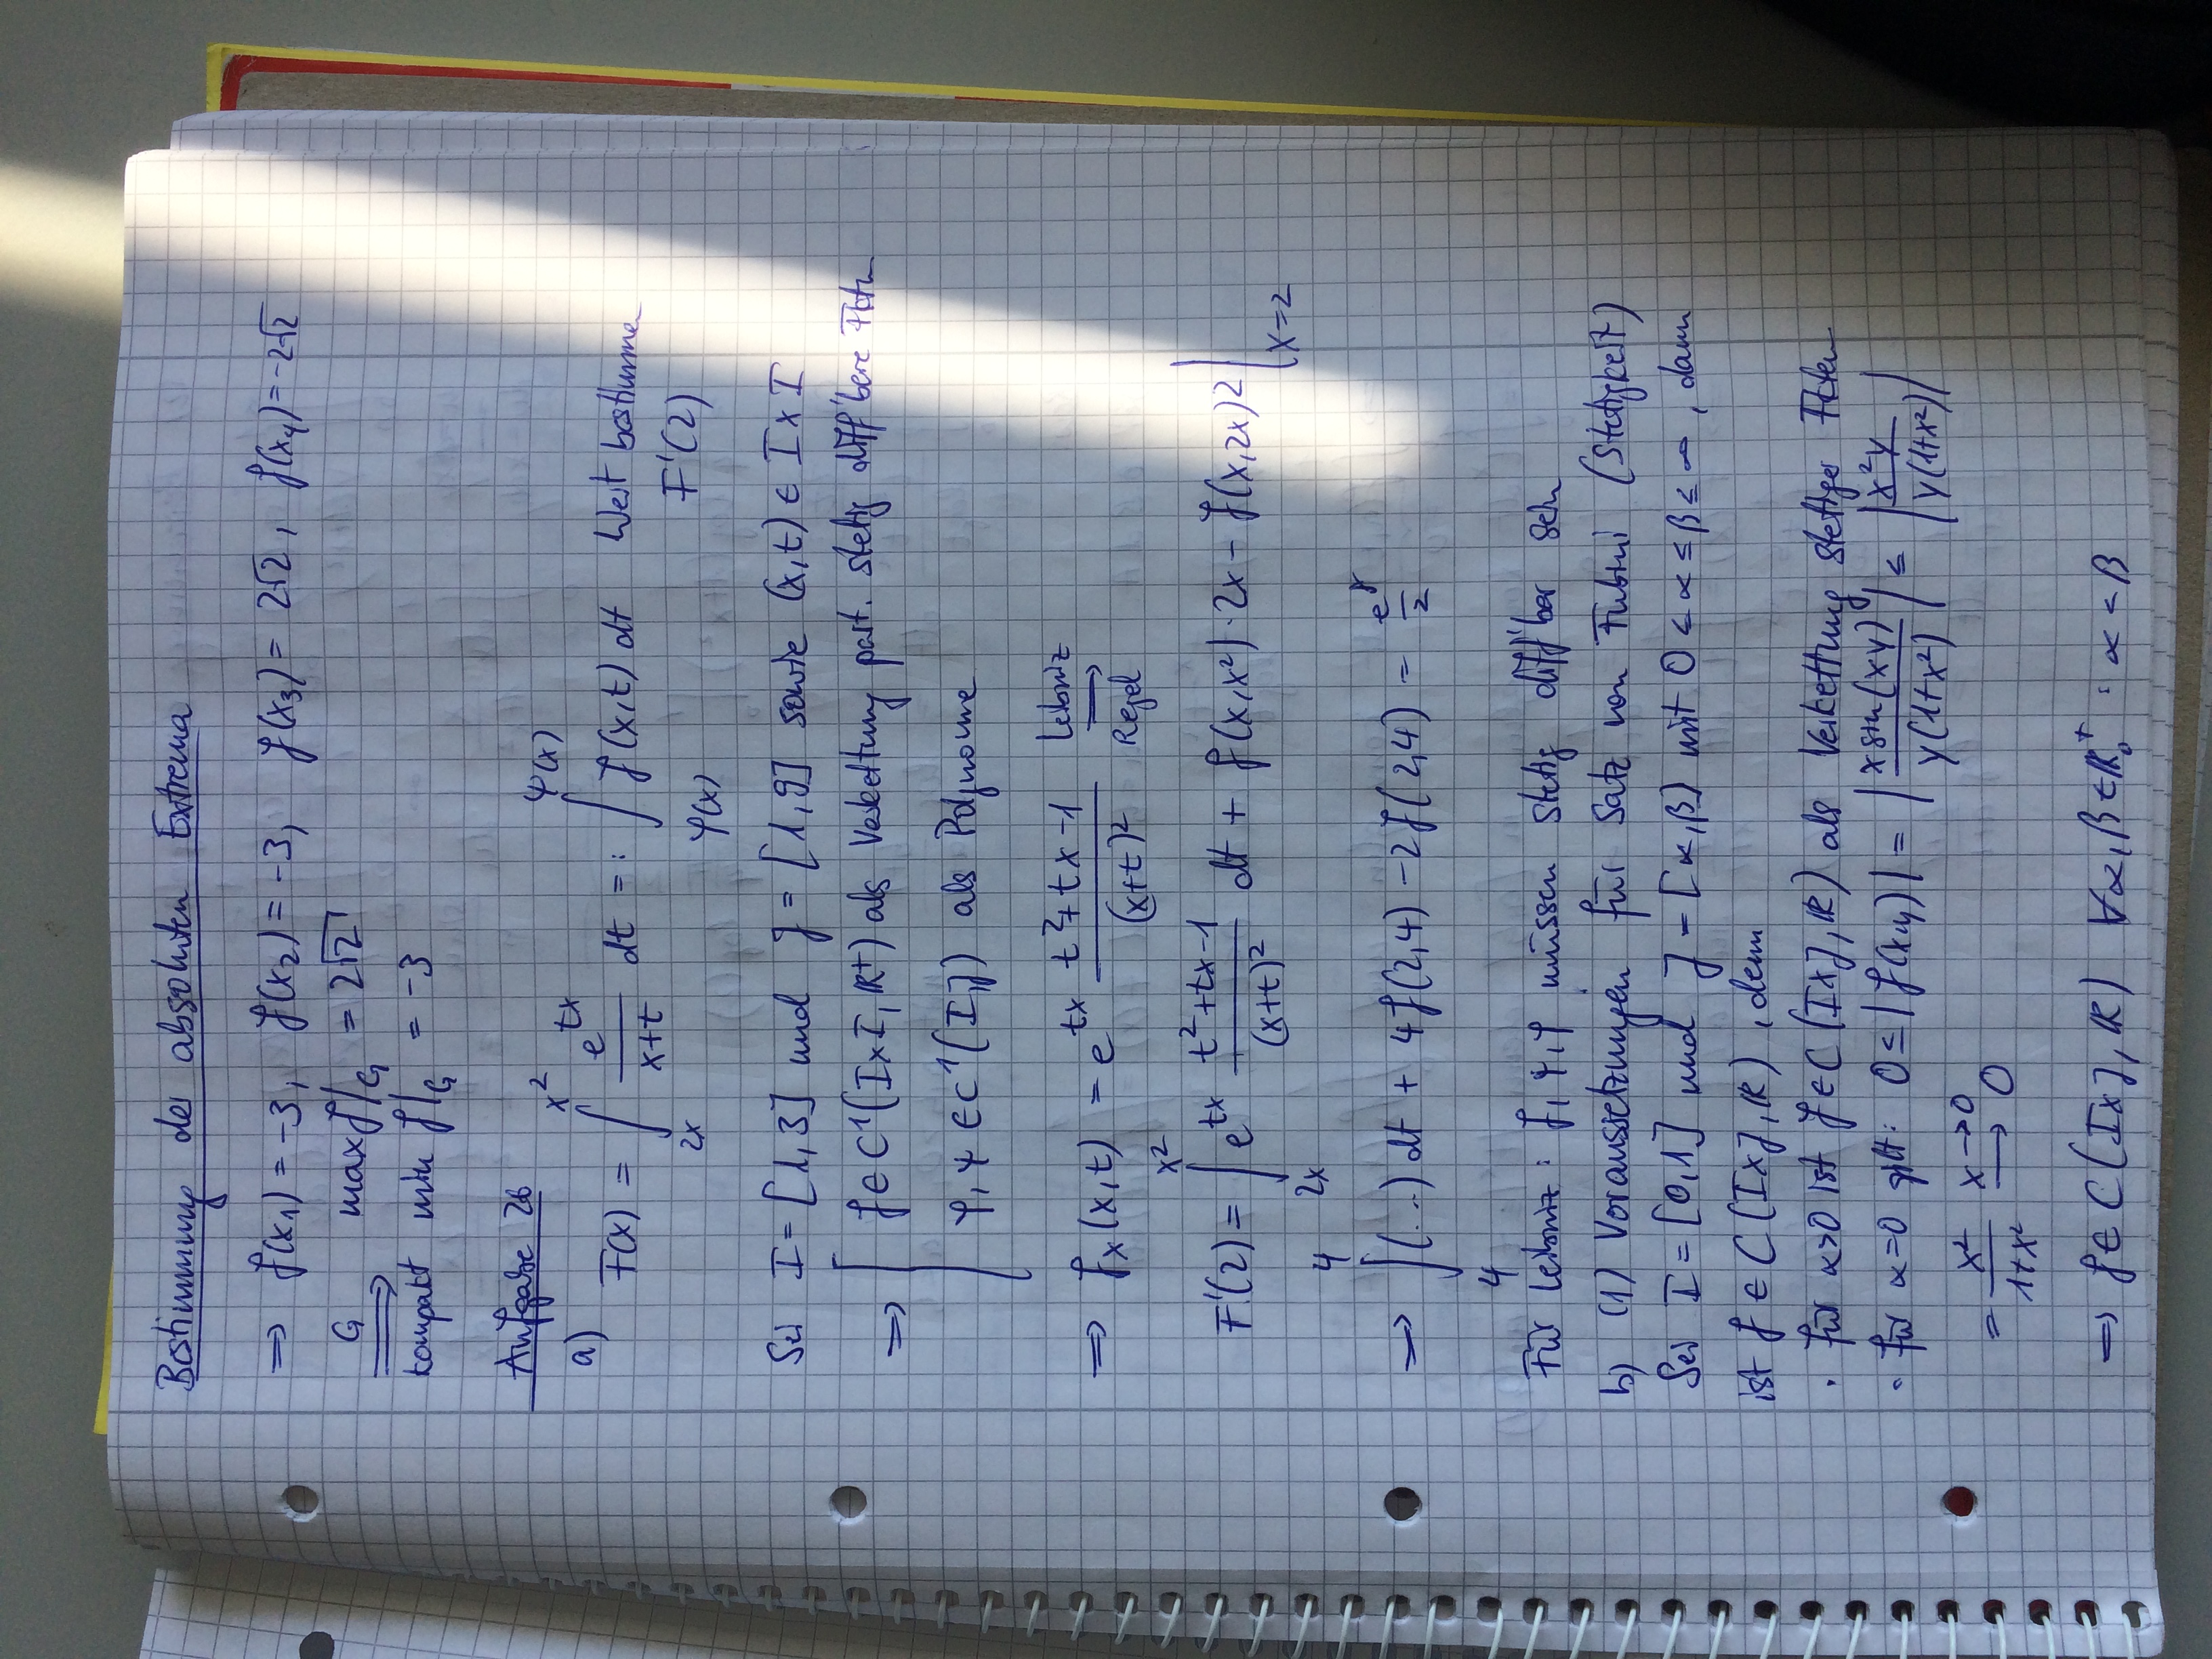 Bestimmung der absoluten Extrema
⇒ f(x₁) = -3, f(x₂) = -3, f(x₃) = 2√2, f(x₄) = -2√2
G ⇒ kompakt max f|_G = 2√2
min f|_G = -3
Aufgabe 26
a) F(x) = ∫_{2x}^{x²} e^{tx}/(x+t) dt =: ∫_{φ(x)}^{ψ(x)} f(x,t) dt Wert bestimmen
F'(2)
Sei I = [1,3] und J = [1,9] sowie (x,t) ∈ I x I
⇒ [ f ∈ C¹(I x I, ℝ⁺) als Verkettung part. stetig diff'bere Fktn
φ, ψ ∈ C¹(I,J) als Polynome
⇒ f_x(x,t) = e^{tx} (t²+tx-1)/(x+t)² Leibniz → Regel
F'(2) = ∫_{2x}^{x²} e^{tx} (t²+tx-1)/(x+t)² dt + f(x,x²)·2x - f(x,2x)2 |_{x=2}
⇒ ∫_4^4 (...) dt + 4f(2,4) - 2f(2,4) = e^8/2
Für Leibniz: f, ψ, φ müssen stetig diff'bar sein
b) (1) Voraussetzungen für Satz von Fubini (Stetigkeit)
Sei I = [0,1] und J = [α,β] mit 0 ≤ α ≤ β ≤ ∞, dann
ist f ∈ C(I x J, ℝ), denn
· für α>0 ist f ∈ C(I x J, ℝ) als Verkettung stetiger Fkten
· für α=0 gilt: 0 ≤ |f(x,y)| = |x sin(xy)/(y(1+x²))| ≤ |x²y/(y(1+x²))|
= x²/(1+x²) x→0 → 0
⇒ f ∈ C(I x J, ℝ) ∀α,β ∈ ℝ₀⁺ : α < β